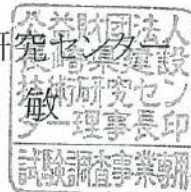 研究センター
敏
公益財団法人
長崎県建設
技術研究セン
ター理事長印
試験調査事業